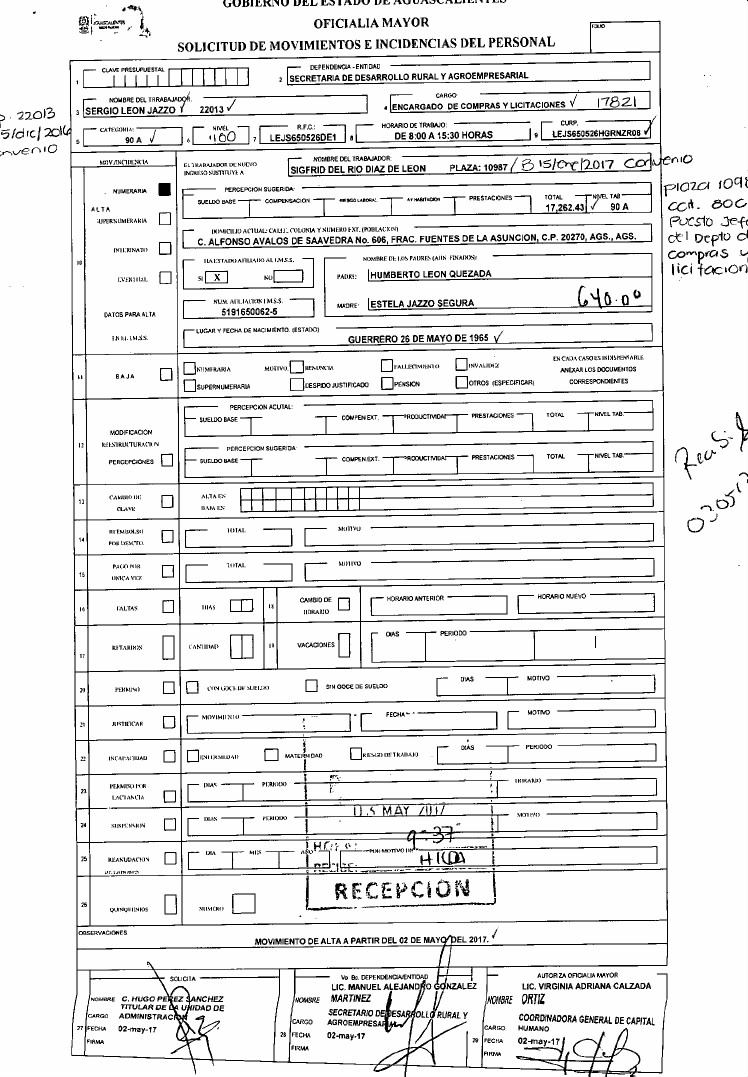 GOBIERNO DEL ESTADO DE AGUASCALIENTES
OFICIALIA MAYOR
SOLICITUD DE MOVIMIENTOS E INCIDENCIAS DEL PERSONAL
FOLIO
1 CLAVE PRESUPUESTAL
2 DEPENDENCIA - ENTIDAD
SECRETARIA DE DESARROLLO RURAL Y AGROEMPRESARIAL
3 NOMBRE DEL TRABAJADOR
SERGIO LEON JAZZO 22013
4 CARGO
ENCARGADO DE COMPRAS Y LICITACIONES 17821
22013
5/dic/2016
5 CATEGORIA: 90 A
6 NIVEL 400
7 R.F.C. LEJS650526DE1
8 HORARIO DE TRABAJO: DE 8:00 A 15:30 HORAS
9 CURP. LEJS650526HGRNZR08
MOV.INCIDENCIA
EL TRABAJADOR DE NUEVO
INGRESO SUSTITUYE A
NOMBRE DEL TRABAJADOR:
SIGFRID DEL RIO DIAZ DE LEON PLAZA: 10987 / B 15/Ene/2017 Convenio
NUMERARIA
PERCEPCION SUGERIDA:
SUELDO BASE COMPENSACION RIESGO LABORAL AY HABITACION PRESTACIONES TOTAL NIVEL TAB
17,262.43 90 A
Plaza 1098
Puesto Jefe
del Depto d
compras y
licitacion
ALTA
SUPERNUMERARIA
DOMICILIO ACTUAL: CALLE, COLONIA Y NUMERO EXT. (POBLACION)
C. ALFONSO AVALOS DE SAAVEDRA No. 606, FRAC. FUENTES DE LA ASUNCION, C.P. 20270, AGS., AGS.
10
INTERINATO
EVENTUAL
HA ESTADO AFILIADO AL I.M.S.S.
SI X NO
NOMBRE DE LOS PADRES (AUN FINADOS):
PADRE: HUMBERTO LEON QUEZADA
MADRE: ESTELA JAZZO SEGURA
640.00
DATOS PARA ALTA
EN EL I.M.S.S.
NUM. AFILIACION I.M.S.S.
5191650062-5
LUGAR Y FECHA DE NACIMIENTO. (ESTADO)
GUERRERO 26 DE MAYO DE 1965
11 BAJA
NUMERARIA MOTIVO: RENUNCIA FALLECIMIENTO INVALIDEZ
SUPERNUMERARIA DESPIDO JUSTIFICADO PENSION OTROS (ESPECIFICAR)
EN CADA CASO ES INDISPENSABLE
ANEXAR LOS DOCUMENTOS
CORRESPONDIENTES
12 MODIFICACION
REESTRUCTURACION
PERCEPCIONES
PERCEPCION ACUTAL:
SUELDO BASE COMPEN EXT. PRODUCTIVIDAD PRESTACIONES TOTAL NIVEL TAB.
PERCEPCION SUGERIDA
SUELDO BASE COMPEN EXT. PRODUCTIVIDAD PRESTACIONES TOTAL NIVEL TAB.
030517
13 CAMBIO DE
CLAVE
ALTA EN
BAJA EN
14 REEMBOLSO
POR DESCTO.
TOTAL MOTIVO
15 PAGO POR
UNICA VEZ
TOTAL MOTIVO
16 FALTAS DIAS
18 CAMBIO DE
HORARIO
HORARIO ANTERIOR HORARIO NUEVO
17 RETARDOS CANTIDAD
19 VACACIONES DIAS PERIODO
20 PERMISO CON GOCE DE SUELDO SIN GOCE DE SUELDO DIAS MOTIVO
21 JUSTIFICAR MOVIMIENTO FECHA MOTIVO
22 INCAPACIDAD ENFERMEDAD MATERNIDAD RIESGO DE TRABAJO DIAS PERIODO
23 PERMISO POR
LACTANCIA
DIAS PERIODO HORARIO
24 SUSPENSION DIAS PERIODO MOTIVO
03 MAY 2017
9:37
25 REANUDACION DIA MES AÑO POR MOTIVO DE
HILDA
RECEPCION
26 QUINQUENIOS NUMERO
OBSERVACIONES
MOVIMIENTO DE ALTA A PARTIR DEL 02 DE MAYO DEL 2017.
27 SOLICITA
NOMBRE C. HUGO PEREZ SANCHEZ
TITULAR DE LA UNIDAD DE
CARGO ADMINISTRACION
FECHA 02-may-17
FIRMA
28 Vo Bo. DEPENDENCIA/ENTIDAD
LIC. MANUEL ALEJANDRO GONZALEZ
NOMBRE MARTINEZ
SECRETARIO DE DESARROLLO RURAL Y
CARGO AGROEMPRESARIAL
FECHA 02-may-17
FIRMA
29 AUTORIZA OFICIALIA MAYOR
LIC. VIRGINIA ADRIANA CALZADA
NOMBRE ORTIZ
COORDINADORA GENERAL DE CAPITAL
CARGO HUMANO
FECHA 02-may-17
FIRMA